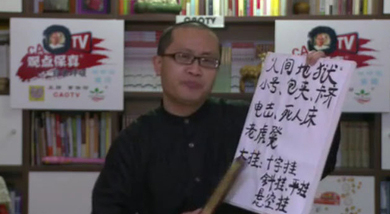 CAOTV
TV
观点保真
CAOTV
CAOTV
人间地狱
小号、包夹、
电击、死人床
老虎凳
大挂:十字挂
挂、平挂
悬空挂